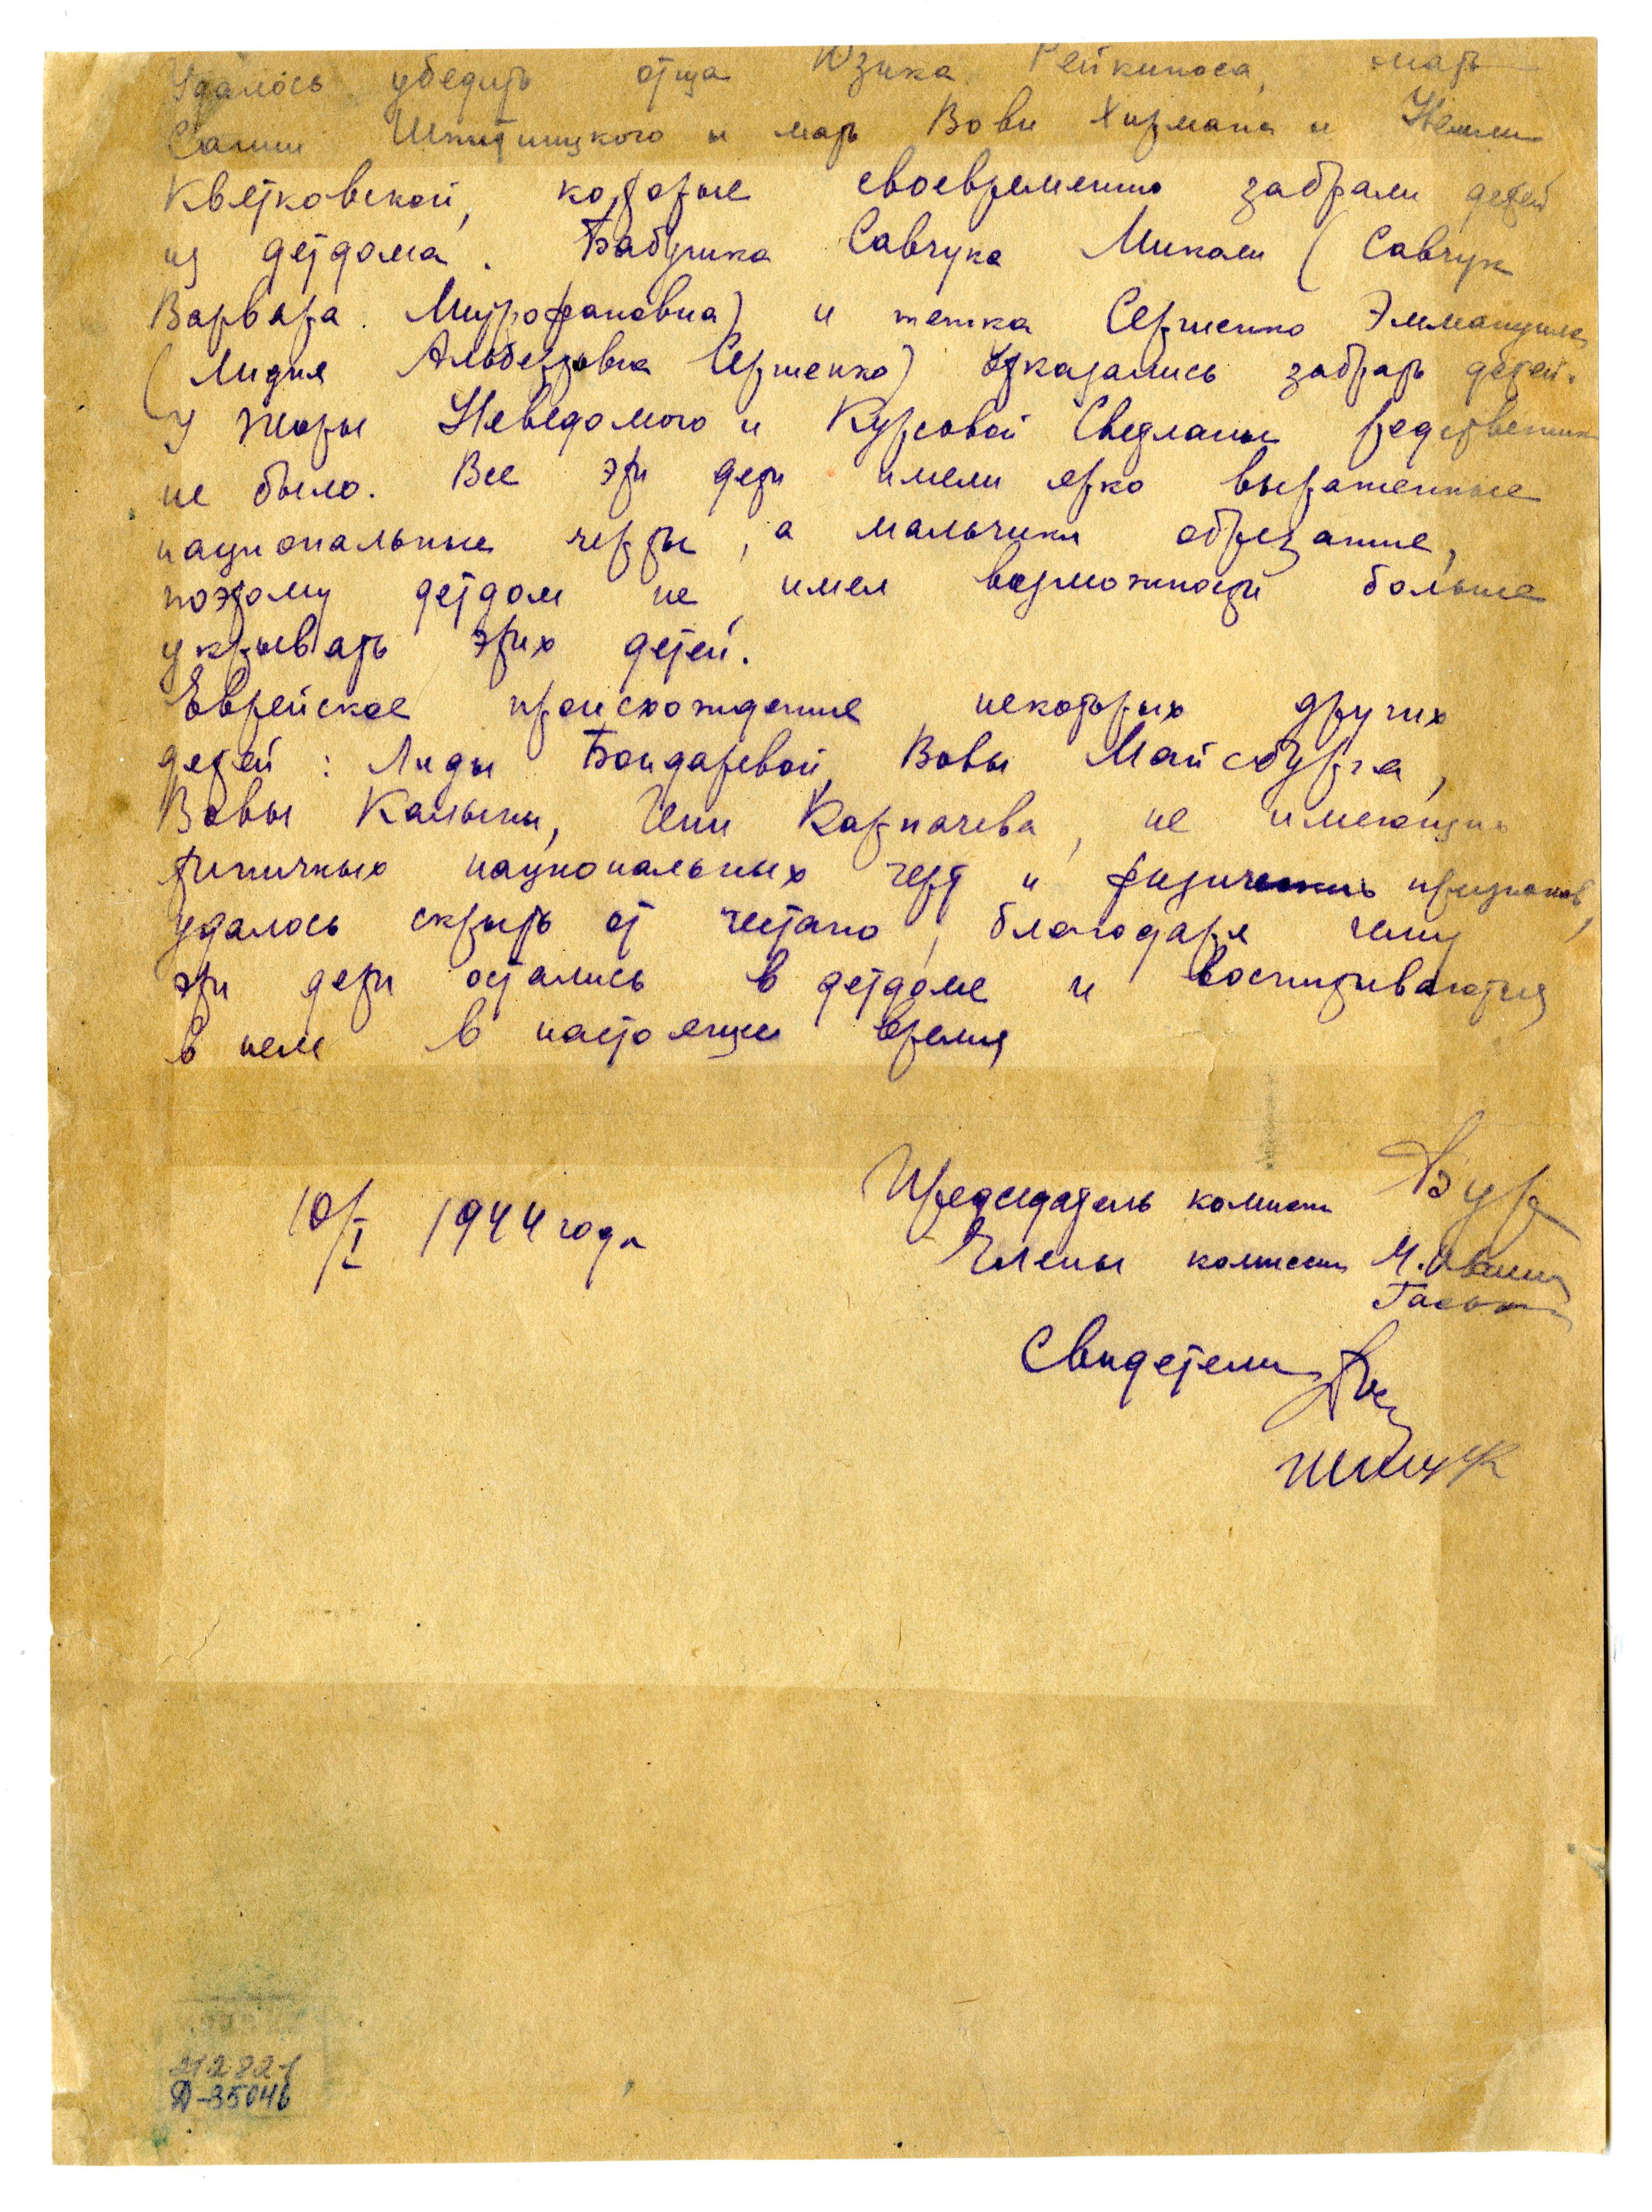 Удалось убедить отца Юзика Рейкиноса, мать
Саши Шпитницкого и мать Вовы Хирмана и Нелли
Квятковской, которые своевременно забрали детей
из детдома. Бабушка Савчука Миколи (Савчук
Варвара Митрофановна) и тетка Сергиенко Эммануила
(Лидия Альбертовна Сергиенко) отказались забрать детей.
У Жоры Неведомого и Курсовой Светланы родственников
не было. Все эти дети имели ярко выраженные
национальные черты, а мальчики обрезанные,
поэтому детдом не имел возможности больше
укрывать этих детей.
Еврейское происхождение некоторых других
детей: Лиды Бондаревой, Вовы Майсбурга,
Вовы Калыны, Гени Карпачева, не имеющих
типичных национальных черт и физических признаков,
удалось скрыть от гестапо, благодаря чему
эти дети остались в детдоме и воспитываются
в нем в настоящее время
10/I 1944 года
Председатель комиссии
Члены комиссии
Свидетели
21282-1
Д-35046